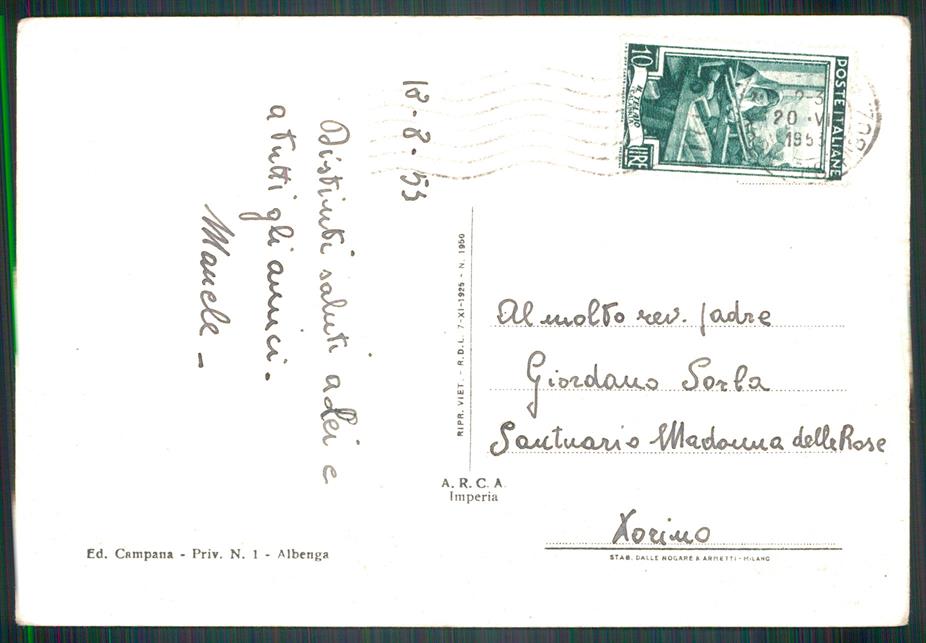 18-8-53
Distinti saluti a Lei e
a tutti gli amici.
Manele -
POSTE ITALIANE
10
LIRE
IL TELAIO
CALABRIA
20 · V
1953
RIPR. VIET. - R.D.L. 7-XI-1925 - N. 1950
Al molto rev. padre
Giordano Sorba
Santuario Madonna delle Rose
Torino
A. R. C. A.
Imperia
Ed. Campana - Priv. N. 1 - Albenga
STAB. DALLE NOGARE & ARMETTI - MILANO